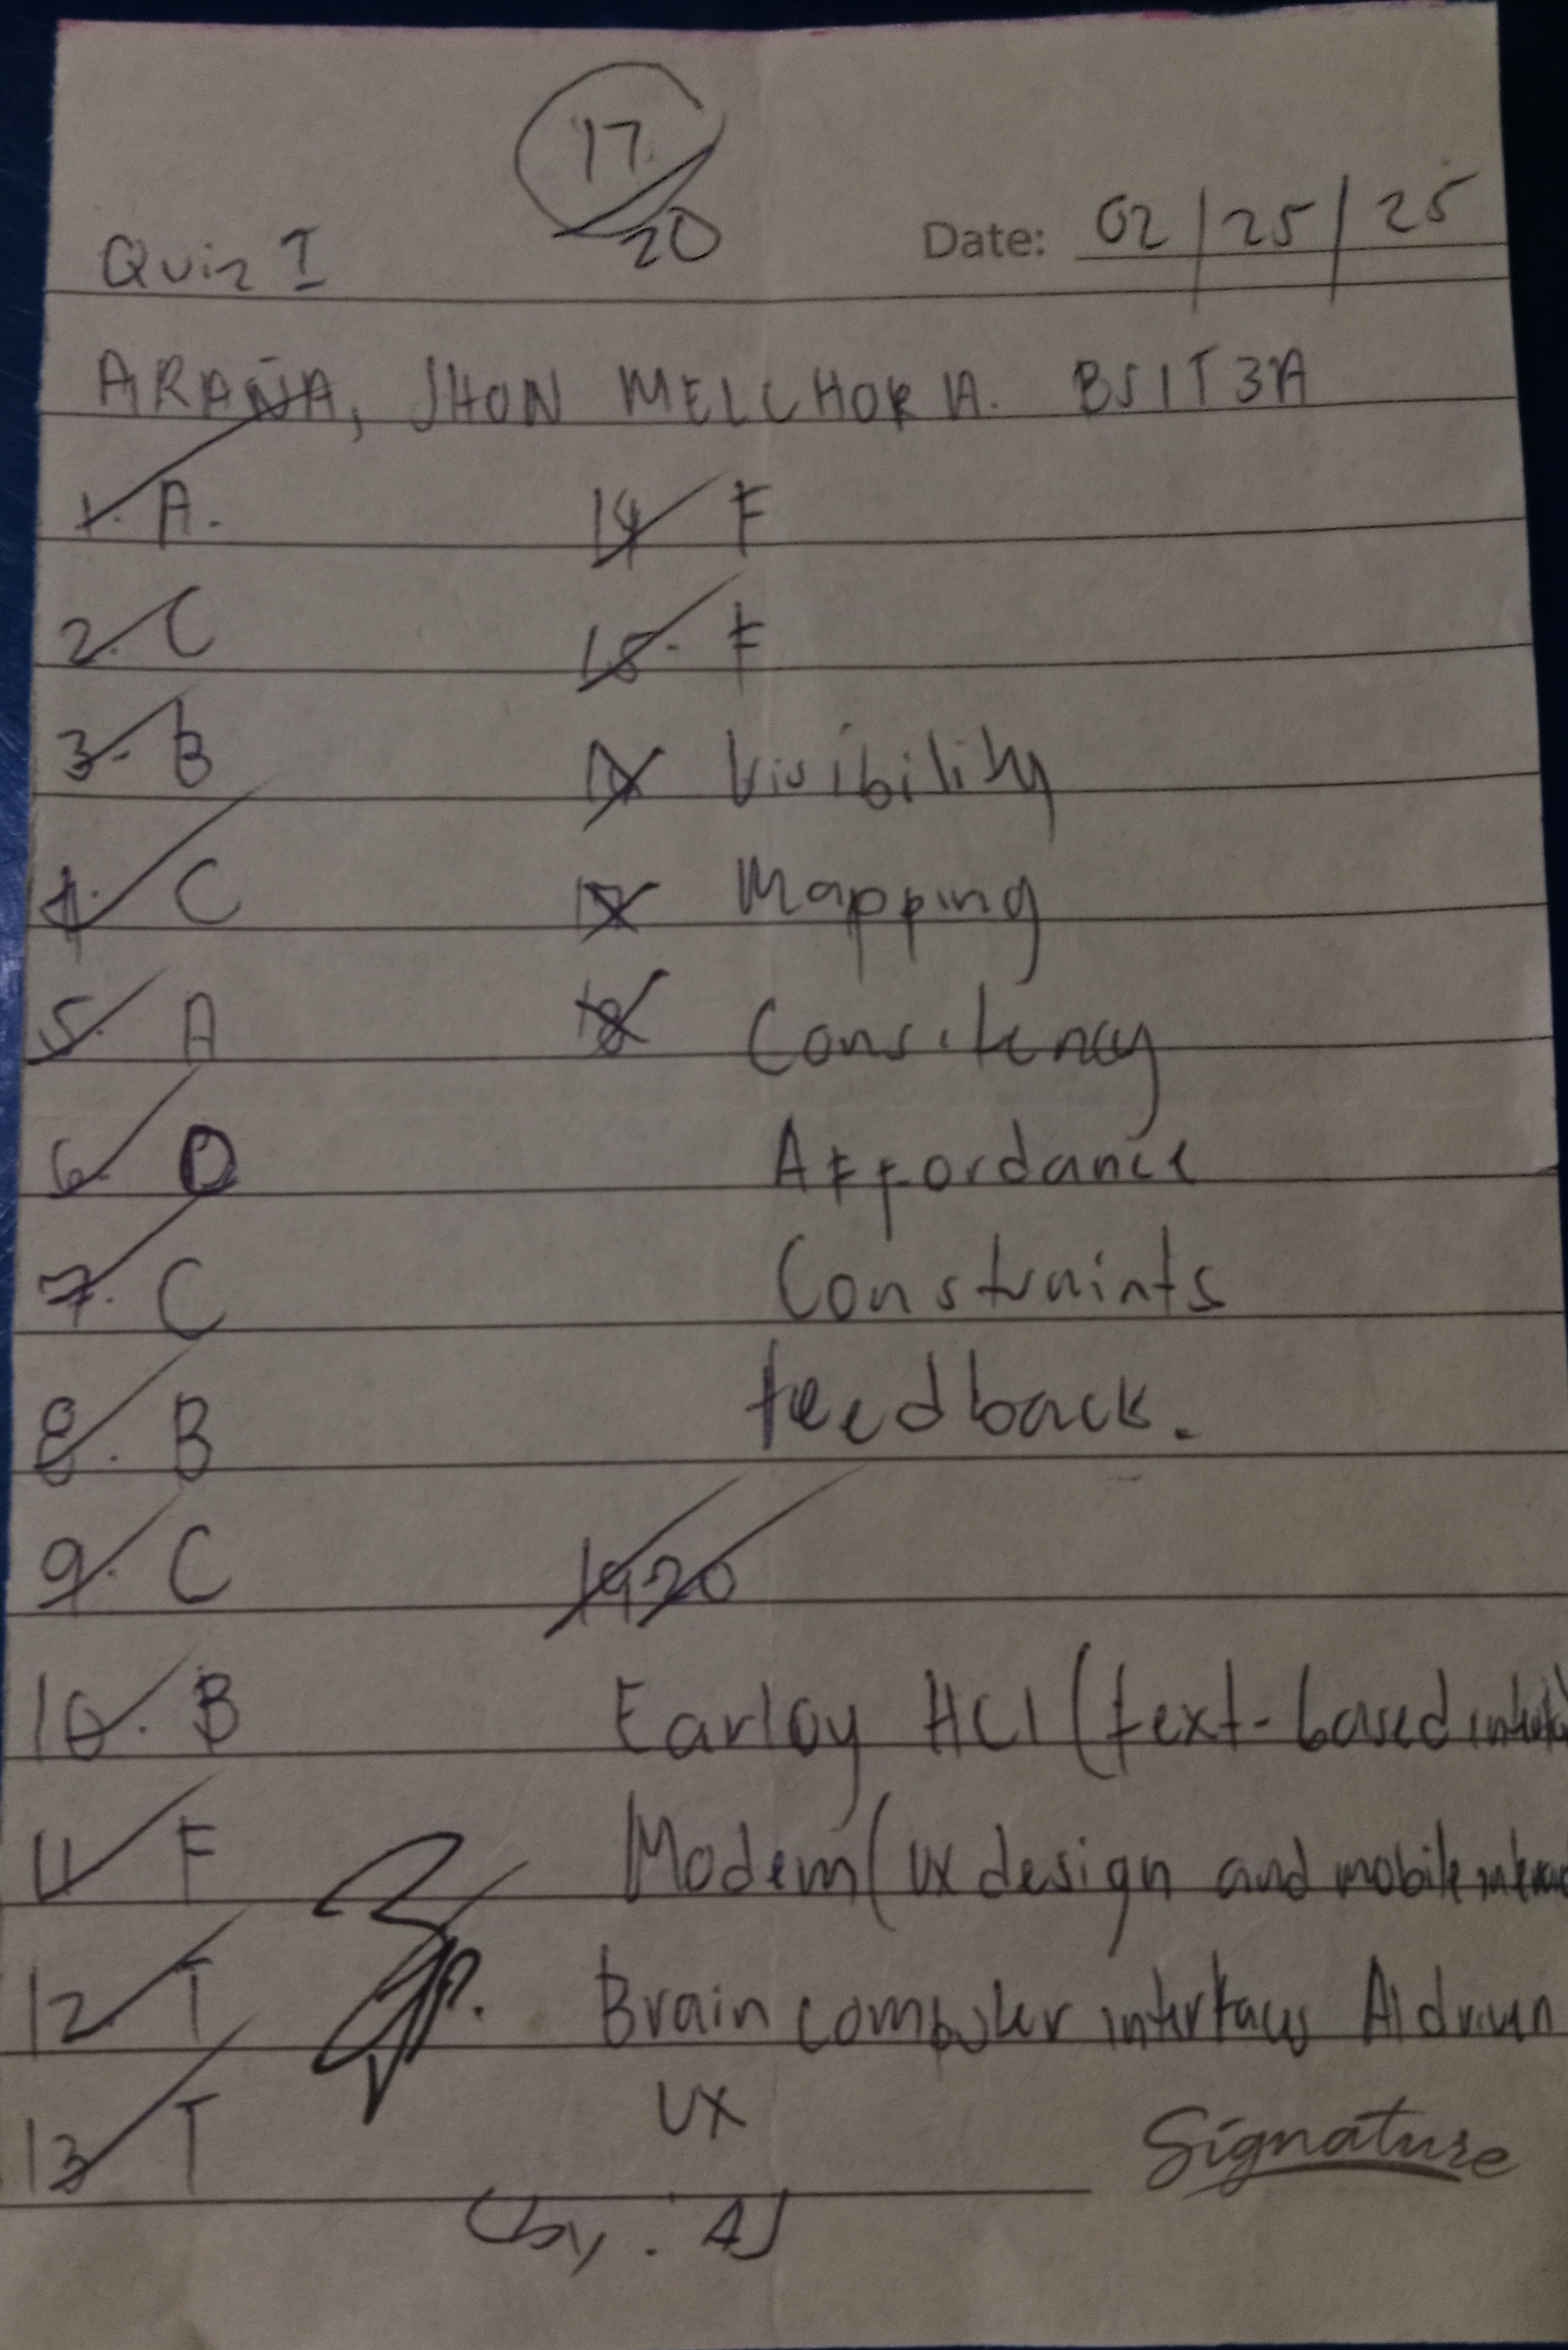 17
20
Quiz I
Date: 02/25/25
ARAÑA, JHON MELCHOR A. BSIT3A
1. A.
2. C
3. B
4. C
5. A
6. D
7. C
8. B
9. C
10. B
11 F
12. T
13 T
14 F
15. F
Visibility
17 Mapping
18 Consitency
Affordance
Constraints
feedback.
19 20
Earloy HCI (text-based
Modern (UX design and mobile
Brain computer interfaces AI driven
UX
Signature